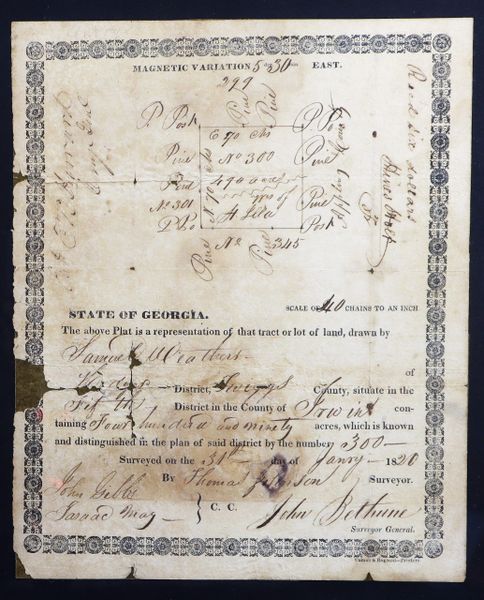 MAGNETIC VARIATION 5 de 30 min EAST.
299
Pine
Pine
P. Post E 70 chs P. Po
Pine No 300 Pine
Pine 490 acres Pine
No 301 N 70 chs Post
P Po
Pine No 345
Pine
Recd six dollars
Hines Holt
SCALE OF 40 CHAINS TO AN INCH
STATE OF GEORGIA.
The above Plat is a representation of that tract or lot of land, drawn by
Samuel Weathers
of
District, Twiggs County, situate in the
Fifth District in the County of Irwin con-
taining Four hundred and ninety acres, which is known
and distinguished in the plan of said district by the number 300
Surveyed on the 31st day of Janry 1820
By Thomas Surveyor.
John Gibbs
Isaac May } C. C. John Bethune
Surveyor General.